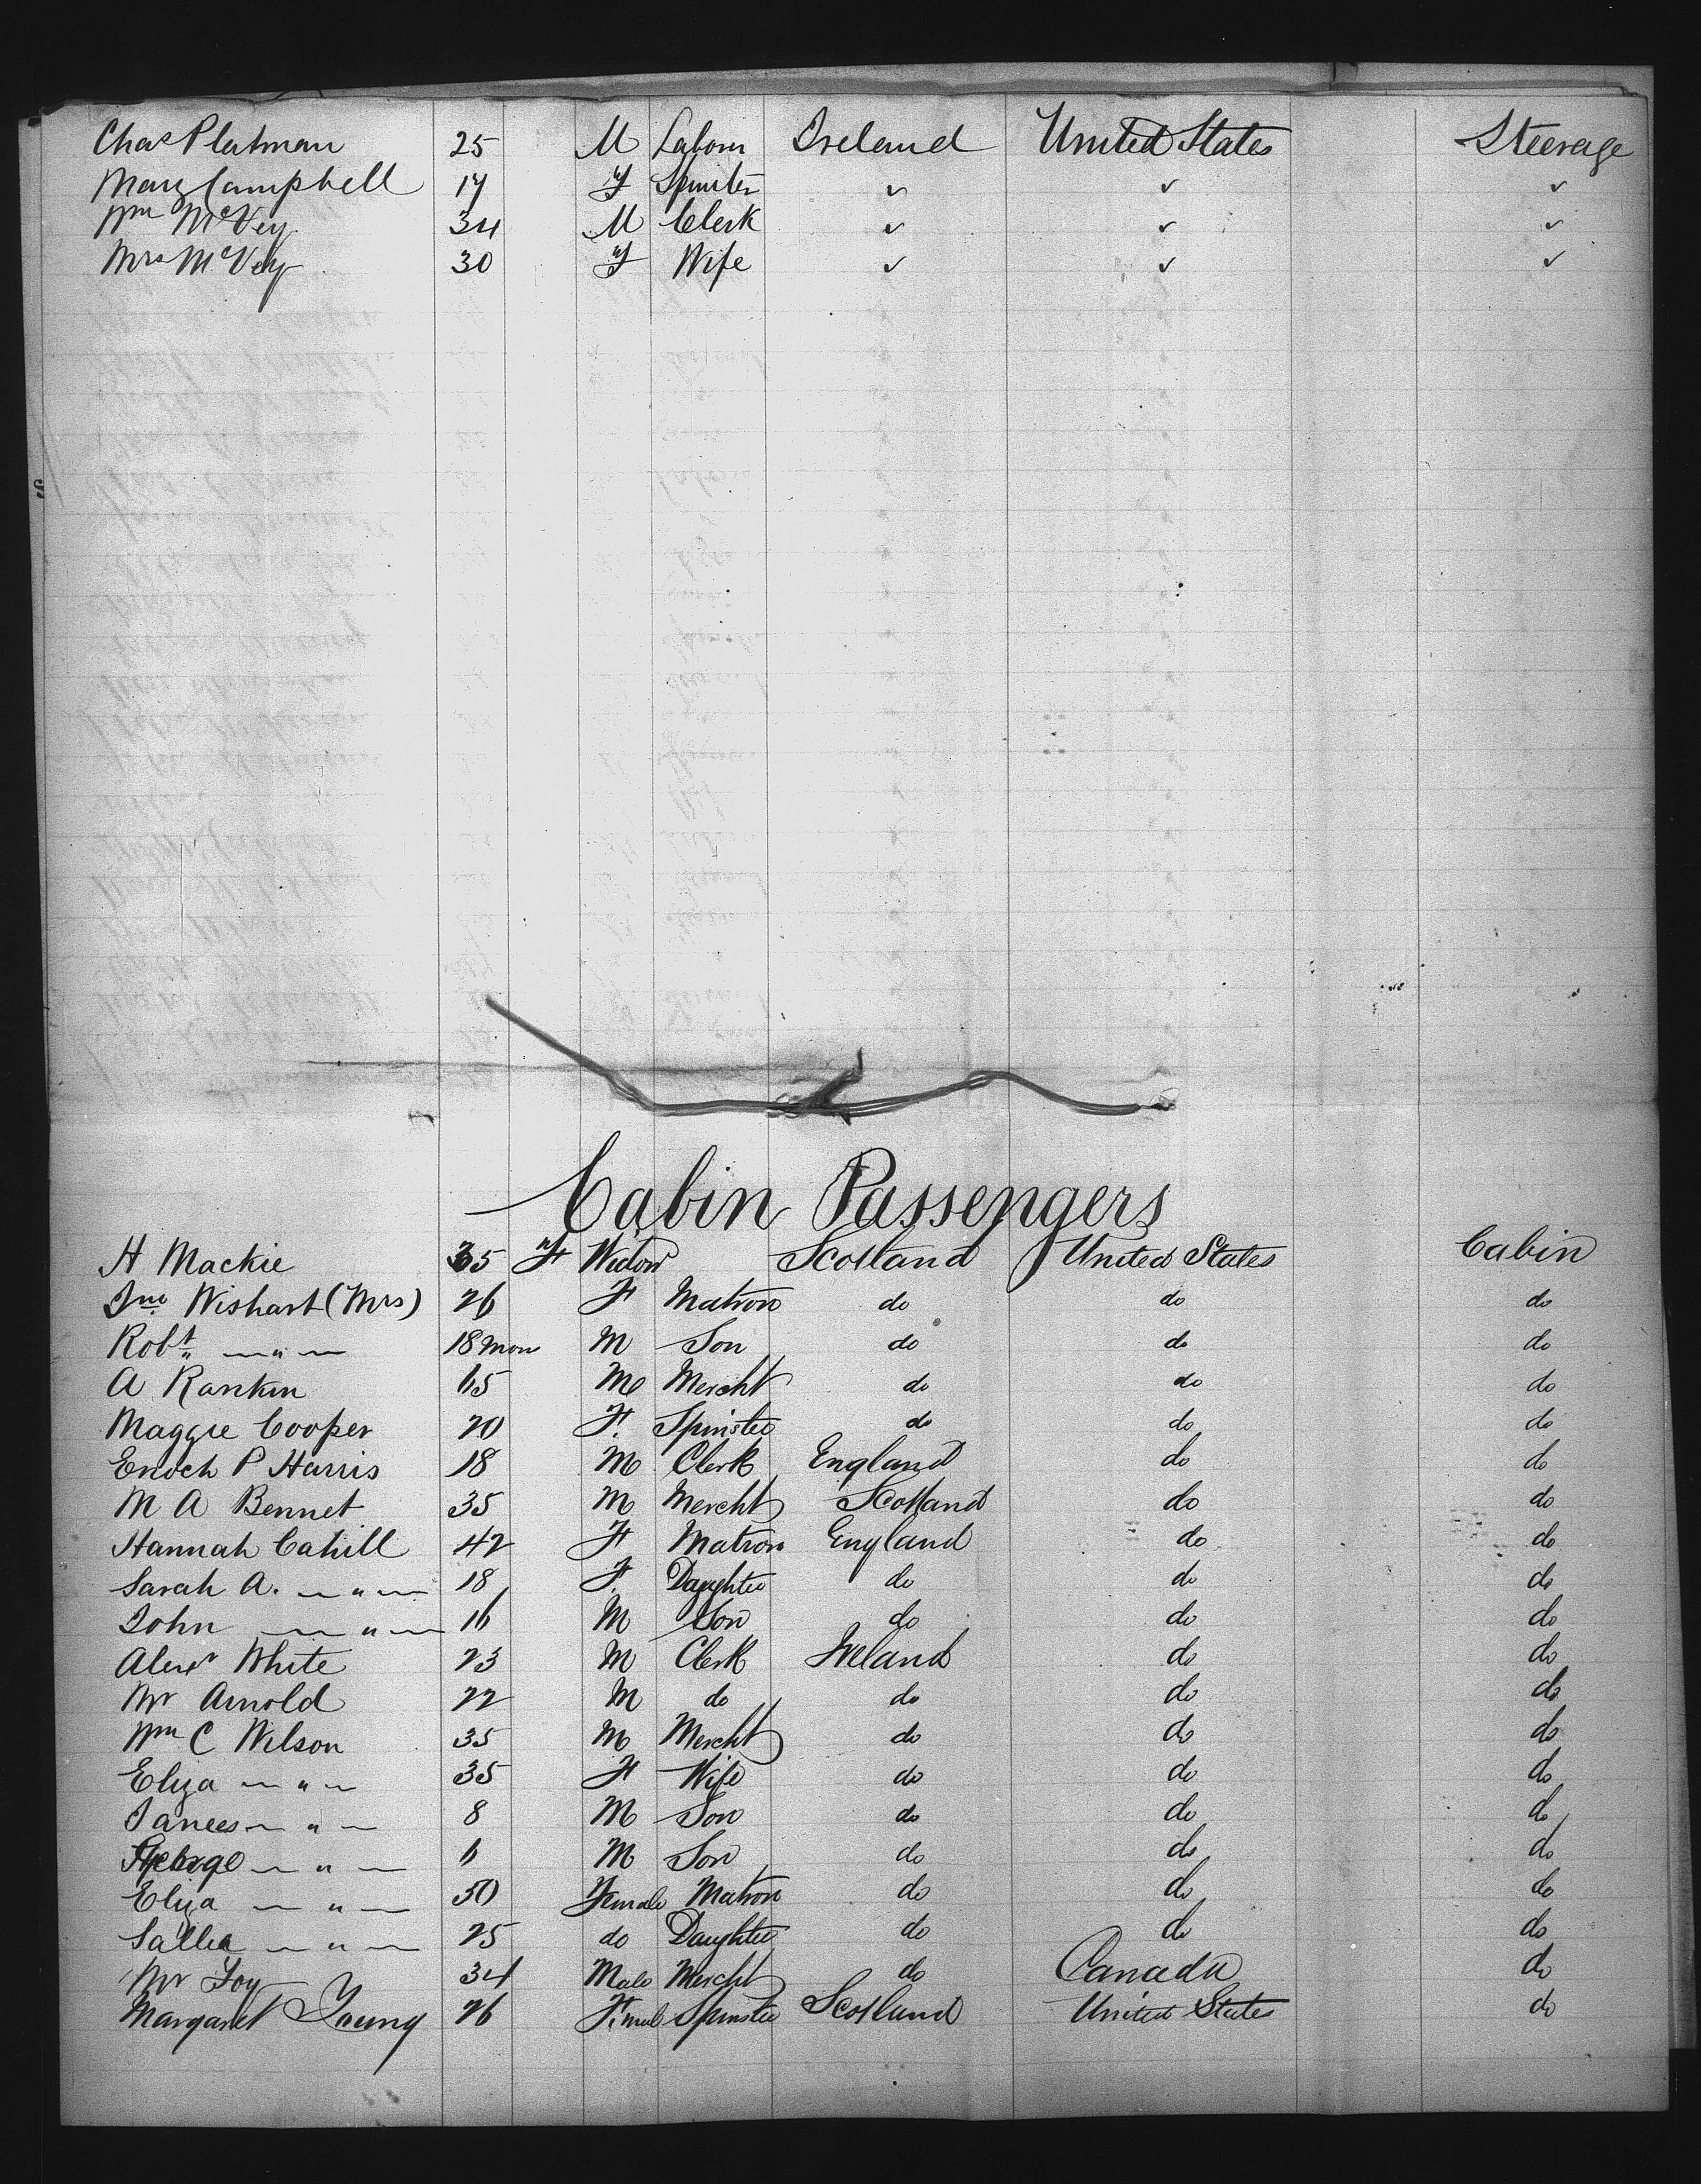 Chas Platman 25 M Laborer Ireland United States Steerage
Mary Campbell 17 F Spinster ✓ ✓ ✓
Wm McVey 34 M Clerk ✓ ✓ ✓
Mrs McVey 30 F Wife ✓ ✓ ✓
Cabin Passengers
H Mackie 35 F Widow Scotland United States Cabin
Jno Wishart (Mrs) 26 F Matron do do do
Robt — " — 18 mon M Son do do do
A Rankin 65 M Mercht do do do
Maggie Cooper 20 F. Spinster do do do
Enoch P Harris 18 M Clerk England do do
M A Bennet 35 M Mercht Scotland do do
Hannah Cahill 42 F Matron England do do
Sarah A. — " — 18 F. Daughter do do do
John — " — 16 M Son do do do
Alexr White 23 M Clerk Ireland do do
Mr Arnold 22 M do do do do
Wm C Wilson 35 M Mercht do do do
Eliza — " — 35 F Wife do do do
James — " — 8 M Son do do do
George — " — 6 M Son do do do
Eliza — " — 50 Female Matron do do do
Sallie — " — 25 do Daughter do do do
Mr Foy 34 Male Mercht do Canada do
Margaret Young 26 Female Spinster Scotland United States do